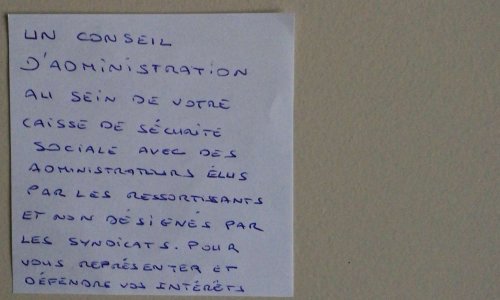 UN CONSEIL
D'ADMINISTRATION
AU SEIN DE VOTRE
CAISSE DE SÉCURITÉ
SOCIALE AVEC DES
ADMINISTRATEURS ÉLUS
PAR LES RESSORTISSANTS
ET NON DÉSIGNÉS PAR
LES SYNDICATS. POUR
VOUS REPRÉSENTER ET
DÉFENDRE VOS INTÉRÊTS